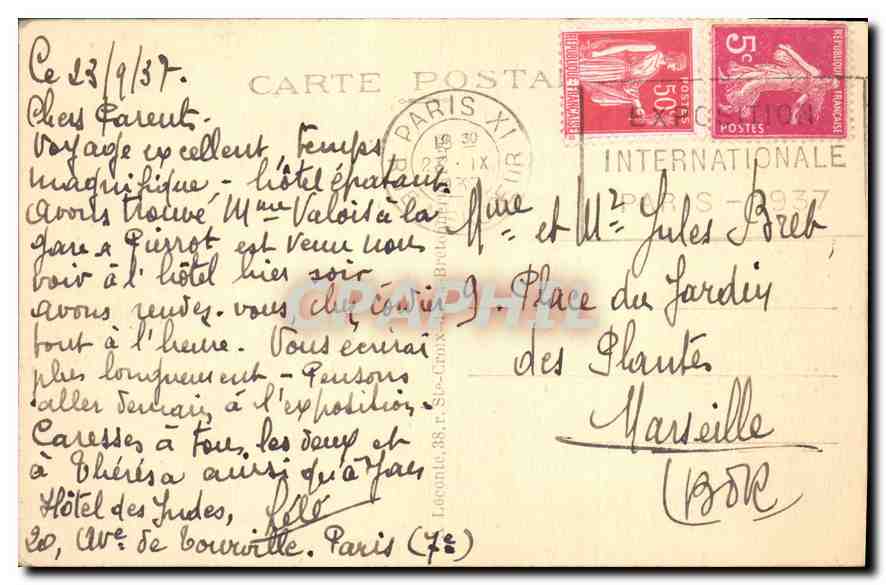 Ce 23/9/37.
CARTE POSTALE
Chers Parents.
Voyage excellent, temps
magnifique - hôtel épatant.
avons trouvé Mme Valois à la
gare & Pierrot est venu nous
voir à l'hôtel hier soir
avons rendez-vous chez
tout à l'heure. Vous écrirai
plus longuement - Pensons
aller demain à l'exposition.
Caresses à tous les deux et
à Thérésa ainsi qu'à
Hôtel des Indes,
20, Ave de Tourville. Paris (7e)
PARIS XI
18 30
23 · IX
RÉPUBLIQUE FRANÇAISE
50c
POSTES
5c
RÉPUBLIQUE FRANÇAISE
POSTES
EXPOSITION
INTERNATIONALE
PARIS - 1937
Mme et Mr Jules Bret
9. Place du Jardin
des Plantes
Marseille
(BDR)
Leconte, 38, r. Ste-Croix
CPAPHIL